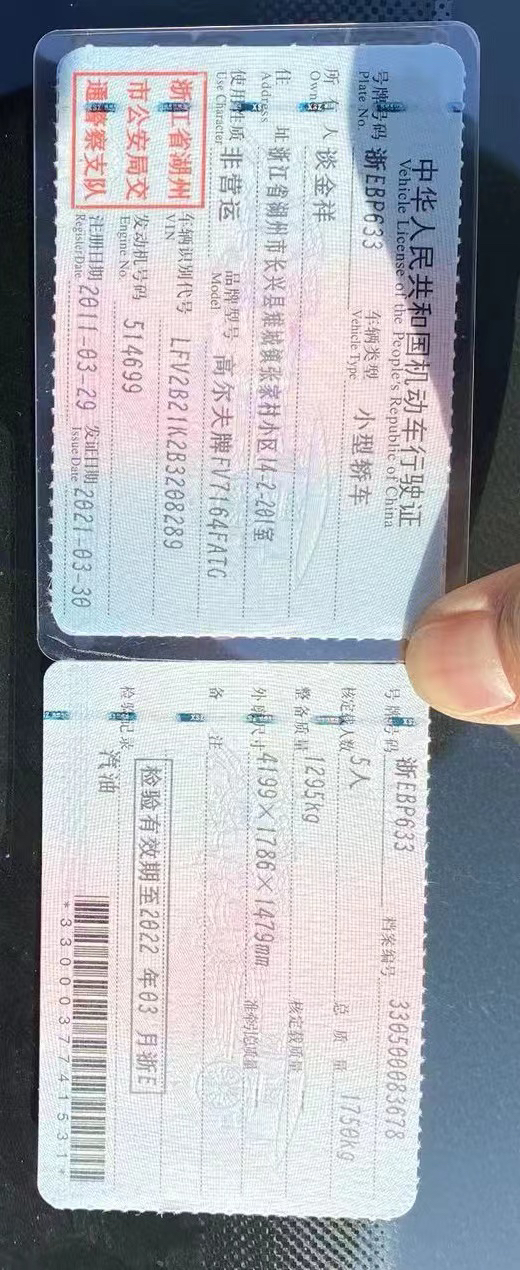 中华人民共和国机动车行驶证
Vehicle License of the People's Republic of China
号牌号码 浙EBP633 车辆类型 小型轿车
Plate No. Vehicle Type
所有人 谈金祥
Owner
住址 浙江省湖州市长兴县雉城镇张家村小区14-2-201室
Address
使用性质 非营运 品牌型号 高尔夫牌FV7164FATG
Use Character Model
浙江省湖州
市公安局交
通警察支队
车辆识别代号 LFV2B21K2B3208289
VIN
发动机号码 514699
Engine No.
注册日期 2011-03-29 发证日期 2021-03-30
Register Date Issue Date
号牌号码 浙EBP633 档案编号 330500083678
核定载人数 5人 总质量 1750kg
整备质量 1295kg 核定载质量
外廓尺寸 4199×1786×1479mm 准牵引总质量
备注
检验有效期至2022年03月浙E
检验记录
汽油
*3300037741531*